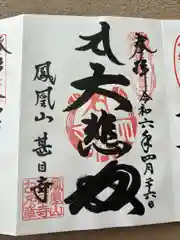 奉拝 令和六年四月二十六日
大悲殿
鳳凰山 甚目寺